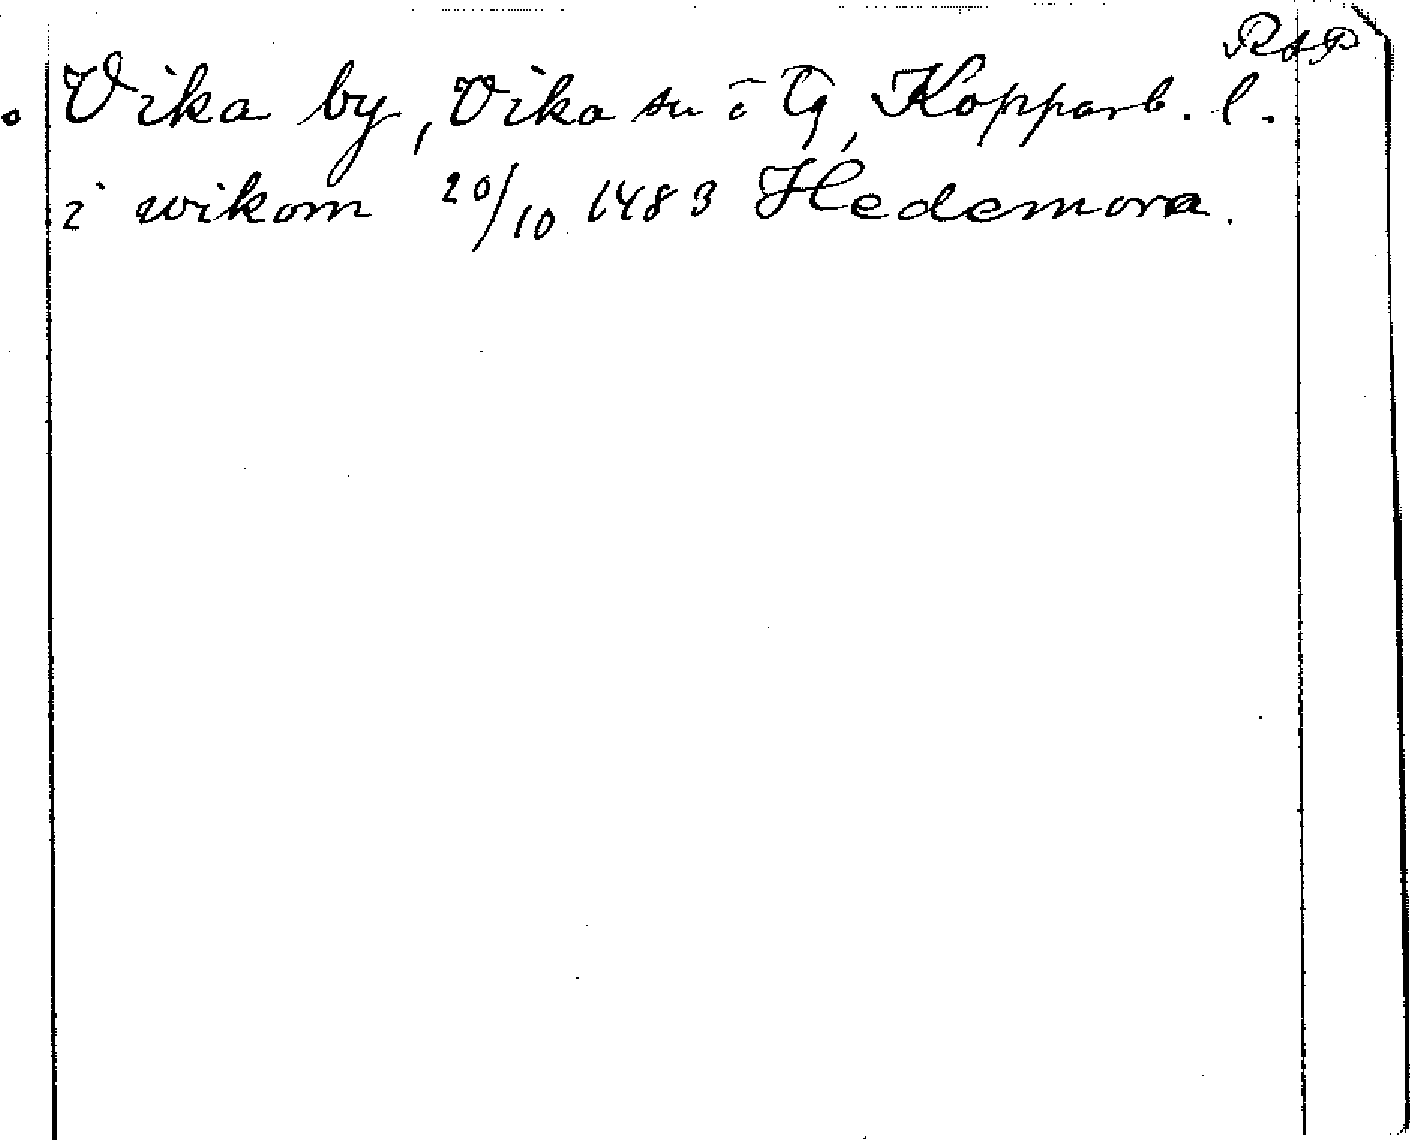 RAP
Vika by, Vika sn o Tg, Kopparb. l.
i wikom 20/10 1483 Hedemora.